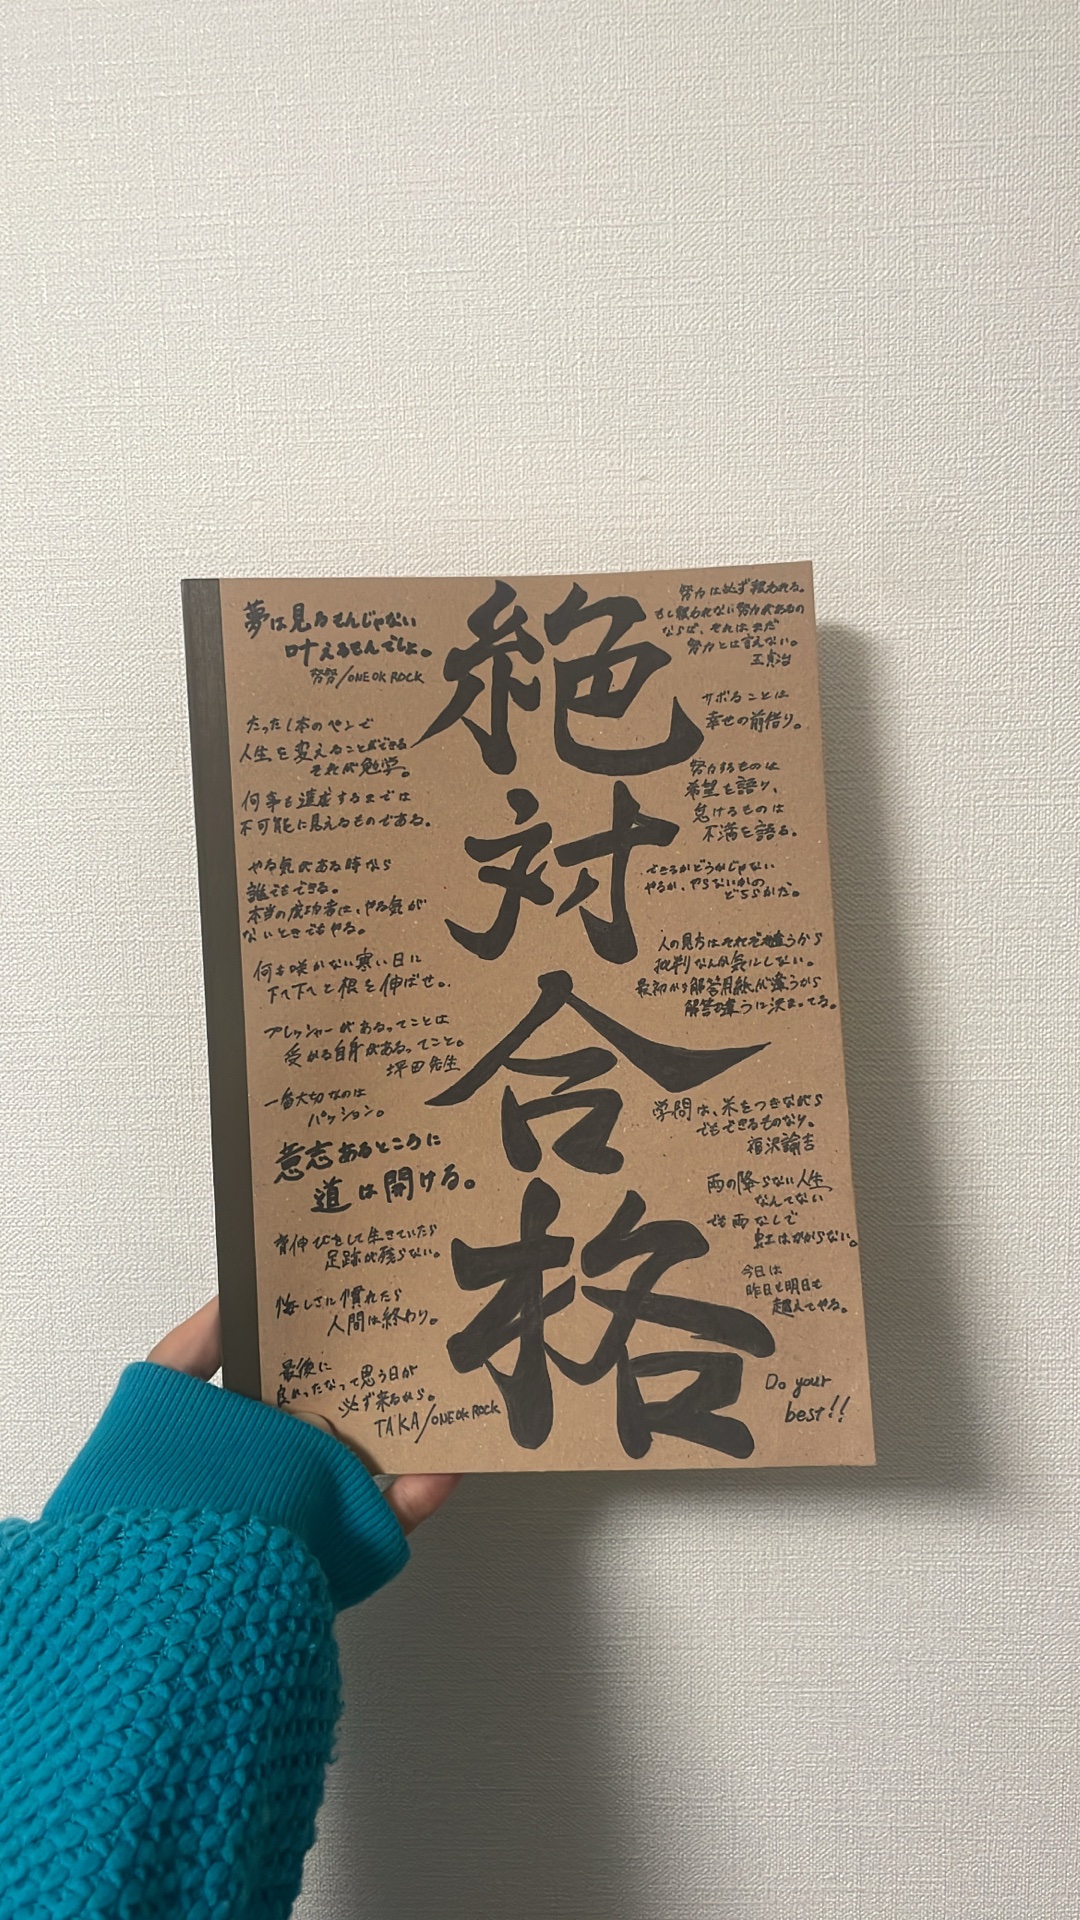 絶対合格
夢は見るもんじゃない
叶えるもんでしょ。
努努/ONE OK ROCK
たった1本のペンで
人生を変えることができる
それが勉学。
何事も達成するまでは
不可能に見えるものである。
やる気がある時なら
誰でもできる。
本当の成功者は、やる気が
ないときでもやる。
何も咲かない寒い日に
下へ下へと根を伸ばせ。
プレッシャーがあるってことは
受かる自身があるってこと。
坪田先生
一番大切なのは
パッション。
意志あるところに
道は開ける。
背伸びをして生きていたら
足跡が残らない。
悔しさに慣れたら
人間は終わり。
最後に
良かったなって思う日が
必ず来るから。
TAKA/ONE OK ROCK
努力は必ず報われる。
もし報われない努力があるの
ならば、それはまだ
努力とは言えない。
王貞治
サボることは
幸せの前借り。
努力するものは
希望を語り、
怠けるものは
不満を語る。
できるかどうかじゃない
やるか、やらないかの
どちらかだ。
人の見方はそれぞれ違うから
批判なんか気にしない。
最初から解答用紙が違うから
解答も違うに決まってる。
学問は、米をつきながら
でもできるものなり。
福沢諭吉
雨の降らない人生
なんてない
でも雨なしで
虹はかからない。
今日は
昨日も明日も
超えてやる。
Do your
best!!